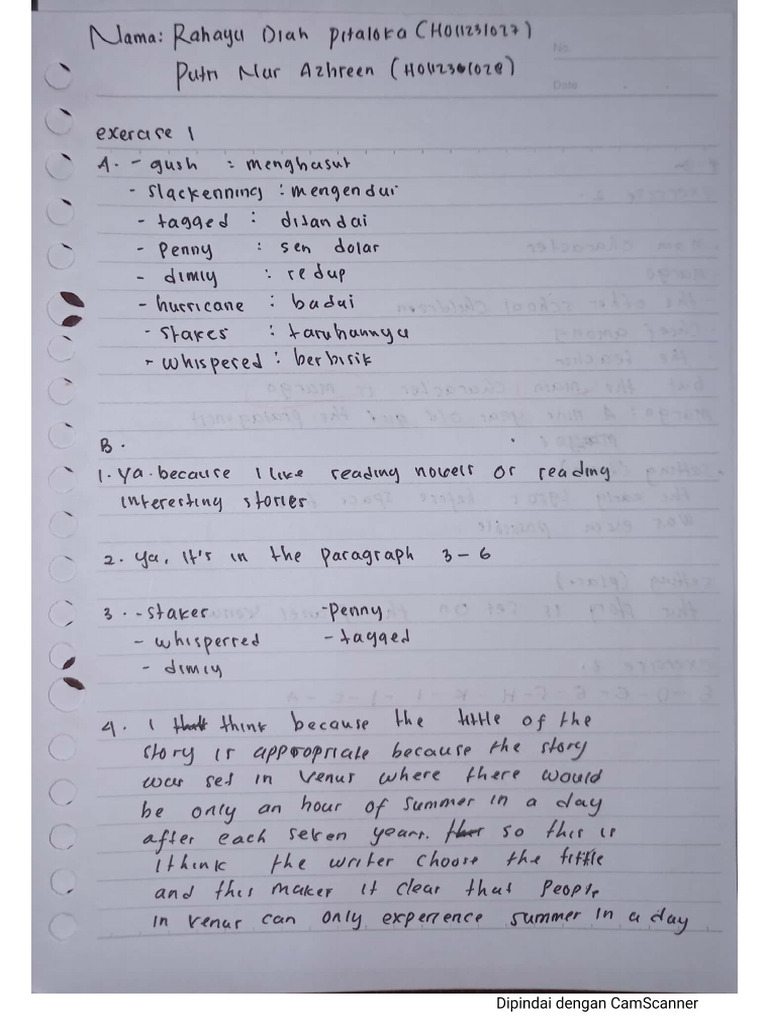 Nama: Rahayu Diah Pitaloka (H011231027)
Putri Nur Azhreen (H011231028)
No.
Date
exercise 1
A. - gush : menghasut
- slackenning : mengendur
- tagged : ditandai
- Penny : sen dolar
- dimly : redup
- hurricane : badai
- stakes : taruhannya
- whispered : berbisik
B.
1. Ya. because I like reading novels or reading
interesting stories
2. Ya, It's in the paragraph 3 - 6
3. - staker - Penny
- whisperred - tagged
- dimly
4. I think because the tittle of the
story is appropriate because the story
was set in Venus where there would
be only an hour of summer in a day
after each seven years. so this is
I think the writer choose the tittle
and this maker it clear that people
in Venus can only experience summer in a day
Dipindai dengan CamScanner